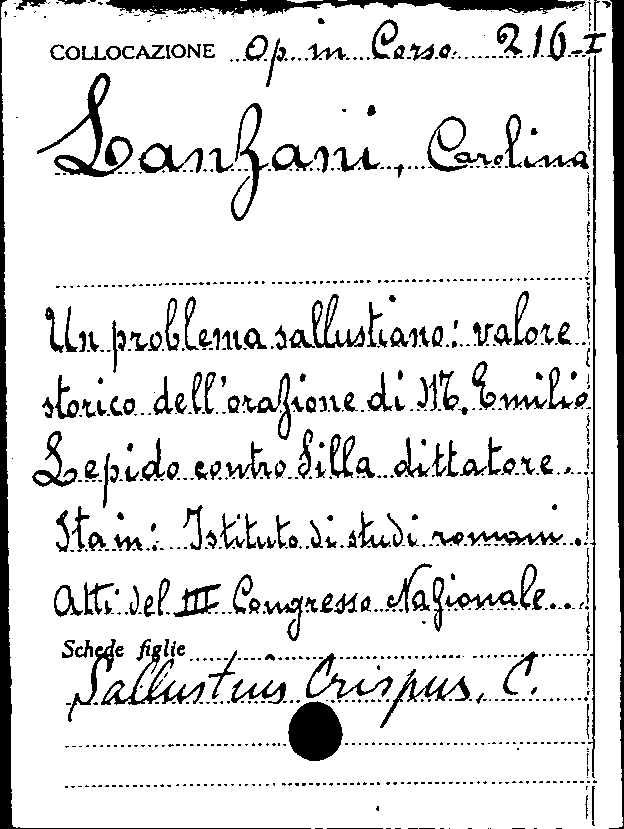 COLLOCAZIONE Op. in Corso. 216-I
Lanzani, Carolina
Un problema sallustiano: valore
storico dell'orazione di M. Emilio
Lepido contro Silla dittatore.
Sta in: Istituto di studi romani.
Atti del III Congresso Nazionale...
Schede figlie
Sallustius Crispus, C.